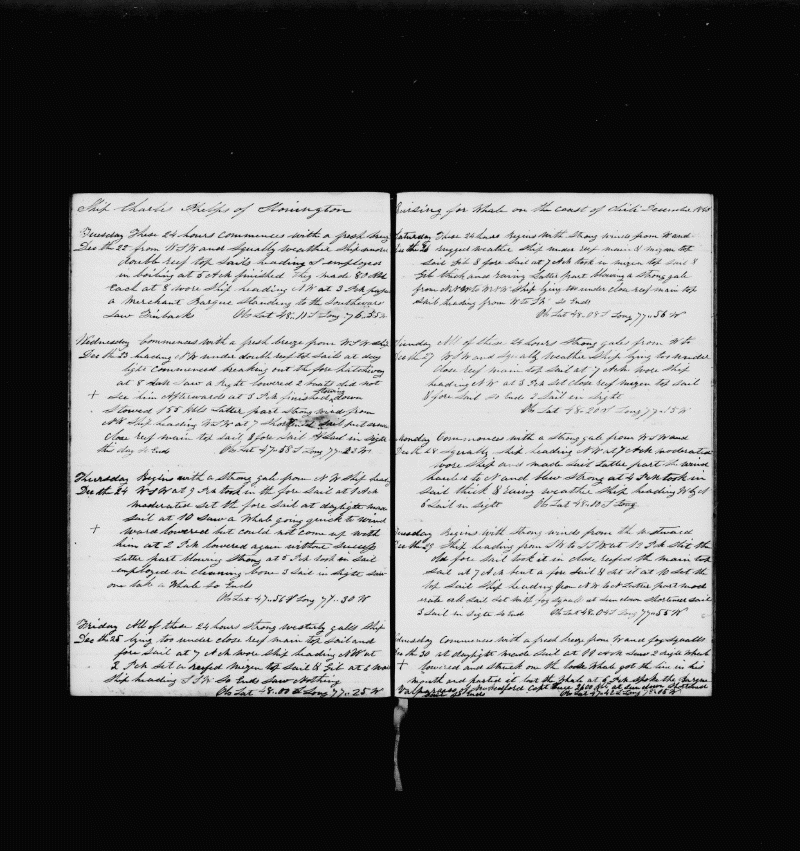 Ship Charles Phelps of Stonington
Tuesday These 24 hours commences with a fresh breeze
Dec th 22 from WSW and squally weather Ship under
double reef top sails heading S employed
in boiling at 5 AM finished They made 80 bbls
Each at 8 wore ship heading NW at 3 PM passed
a Merchant Barque standing to the Southward
Saw Finback Ob Lat 48..10 S Long 76..35 W
Wednesday Commences with a fresh breeze from WSW ship
Dec th 23 heading NW under double reef top sails at day
light commenced breaking out the fore hatchway
at 8 AM Saw a Right lowered 2 boats did not
+ See him Afterwards at 3 PM finished stowing down
Stowed 155 bbls Latter part Strong wind from
NW Ship heading WSW at 7 Shortened Sail put under
close reef main top sail & fore sail in sight
this day So Ends Ob Lat 47..58 S Long 77..23 W
Thursday Begins with a Strong gale from NW Ship heading
Dec th 24 WSW at 9 PM took in the fore sail at 5 AM
moderated set the fore sail at daylight made
sail at 10 Saw a Whale going quick to wind
+ ward lowered but could not come up with
him at 2 PM lowered again without success
Latter part blowing Strong at 5 PM took in sail
employed in cleaning bone 3 Sail in sight saw
one take a Whale So Ends
Ob Lat 47..56 S Long 77..30 W
Friday All of these 24 hours Strong westerly gales Ship
Dec th 25 lying too under close reef main top sail and
fore sail at 7 AM wore ship heading NW at
2 PM set a reefed mizen top sail & Gib at 6 wore
ship heading SSW So Ends Saw Nothing
Ob Lat 48..00 S Long 77..25 W
Cruising for Whale on the coast of Chili December 1846
Saturday These 24 hours Begins with Strong winds from W and
Dec th 26 rugged weather Ship under reef main & mizen top
sail Gib & fore sail at 7 AM took in mizen top sail &
Gib thick and rainy Latter part blowing a Strong gale
from NNW to WNW Ship lying too under close reef main top
Sail heading from W to SW So Ends
Ob Lat 48..08 S Long 77..56 W
Sunday All of these 24 hours Strong gales from W to
Dec th 27 WSW and Squally Weather Ship lying too under
Close reef main top sail at 7 AM wore Ship
heading NW at 3 PM set close reef mizen top sail
& fore sail So Ends 2 Sail in Sight
Ob Lat 48..20 S Long 77..15 W
Monday Commences with a Strong gale from WSW and
Dec th 28 Squally ship heading NW at 7 AM moderated
wore Ship and made sail Latter part the wind
hauled to N and blew Strong at 4 PM took in
Sail thick & rainy weather Ship heading W by N
5 Sail in Sight Ob Lat 48..10 S Long
Tuesday Begins with Strong winds from the westward
Dec th 29 Ship heading from SW to SSW at 12 PM Split the
old fore sail took it in close reefed the main top
sail at 7 AM bent a fore sail & set it at 10 set the
top sail Ship heading from NW Latter part mod
erate all sail set with fog squall at sun down Shortened sail
3 Sail in Sight So End Ob Lat 48..04 S Long 77..55 W
Wednesday Commences with a fresh breeze from W and fog Squalls
Dec th 30 at daylight made Sail at 11 AM Saw 2 right Whale
+ lowered and Struck one the Whale got the line in his
mouth and parted it lost the Whale at 6 PM spoke the Barque
Valparaiso of New Bedford Capt 2600 bbls at Sun down Shortened
Sail So Ends Ob Lat 47..42 S Long 78..05 W